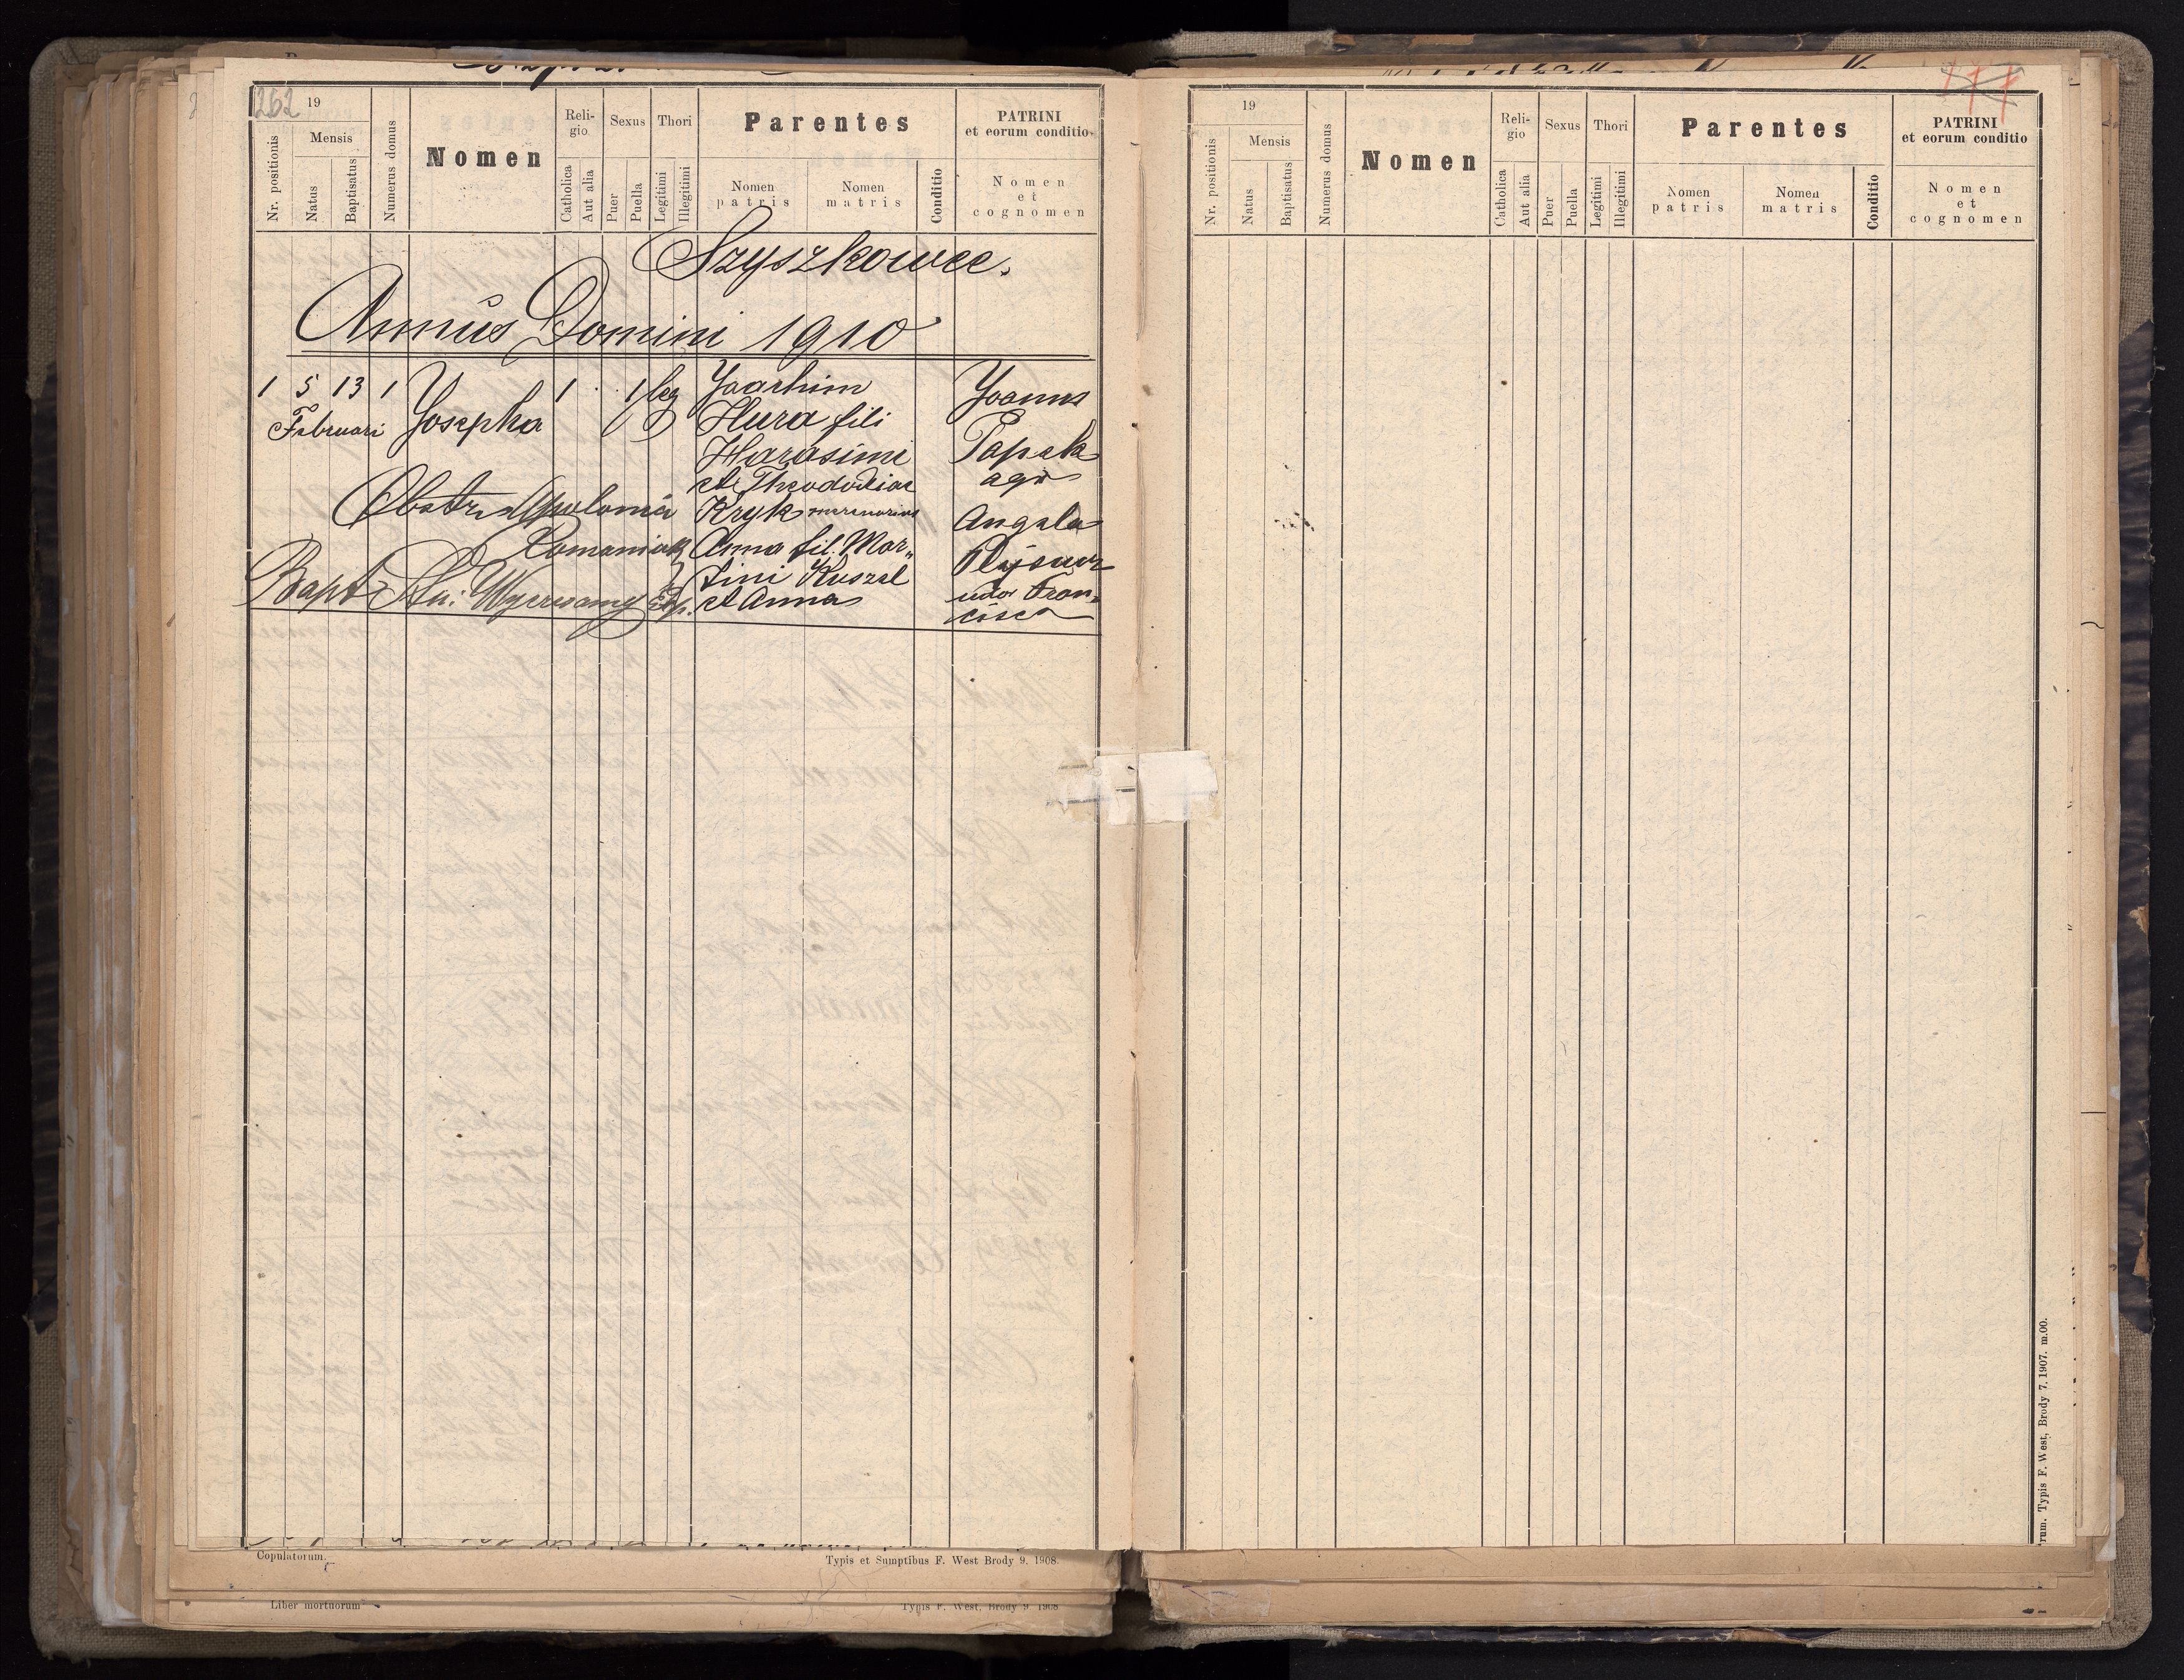 262
19
Mensis
Nr. positionis
Natus
Baptisatus
Numerus domus
Nomen
Reli-
gio
Catholica
Aut alia
Sexus
Puer
Puella
Thori
Legitimi
Illegitimi
Parentes
Nomen
patris
Nomen
matris
Conditio
PATRINI
et eorum conditio
Nomen
et
cognomen
Szyszkowce.
Annus Domini 1910
1 5 13 1 Josepha 1 1 leg
Februari
Joachim
Hura fili
Harasimi
et Theodosiae
Kryk mercenarius
Anna fil. Mar„
tini Kuszel
et Anna
Joannes
Papak
agr
Angela
uxor Fran„
cisca
Obstr. Apolonia
Romaniak
Bapt. Stn. Wyerwany Exp.
19
Mensis
Nr. positionis
Natus
Baptisatus
Numerus domus
Nomen
Reli-
gio
Catholica
Aut alia
Sexus
Puer
Puella
Thori
Legitimi
Illegitimi
Parentes
Nomen
patris
Nomen
matris
Conditio
PATRINI
et eorum conditio
Nomen
et
cognomen
rum. Typis F. West, Brody 7. 1907. m.00.
Copulatorum.
Typis et Sumptibus F. West Brody 9. 1908.
Liber mortuorum
Typis F. West, Brody 9 1908